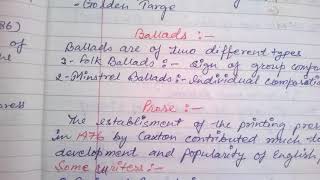 - Golden Targe
Ballads :-
Ballads are of two different types
1- Folk Ballads :- sign of group compo
2- Minstrel Ballads :- Individual compositio
Prose :-
The establisment of the printing pres
in 1476 by Caxton contributed much to
development and popularity of English
Some writers :-
86)
of
the
ress